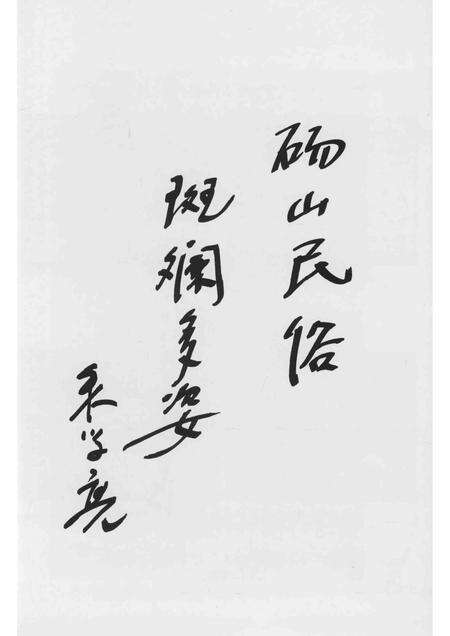 砀山民俗
斑斓多姿
学亮